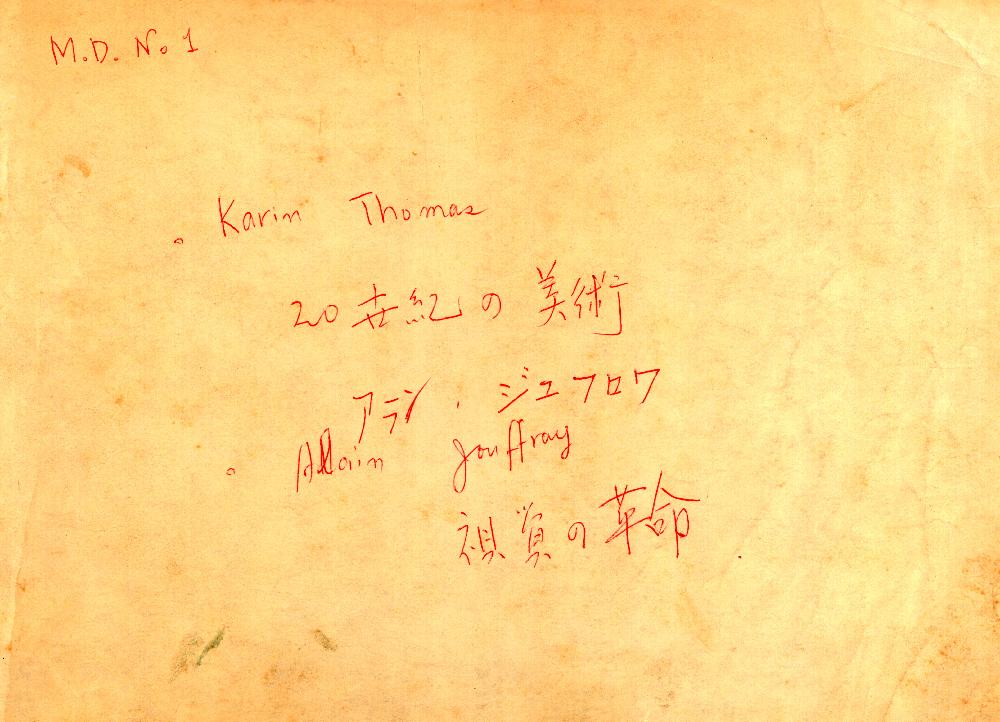 M.D. No 1
。 Karin Thomas
20世紀の美術
アラン・ジュフロワ
。 Allain Jouffray
視覚の革命